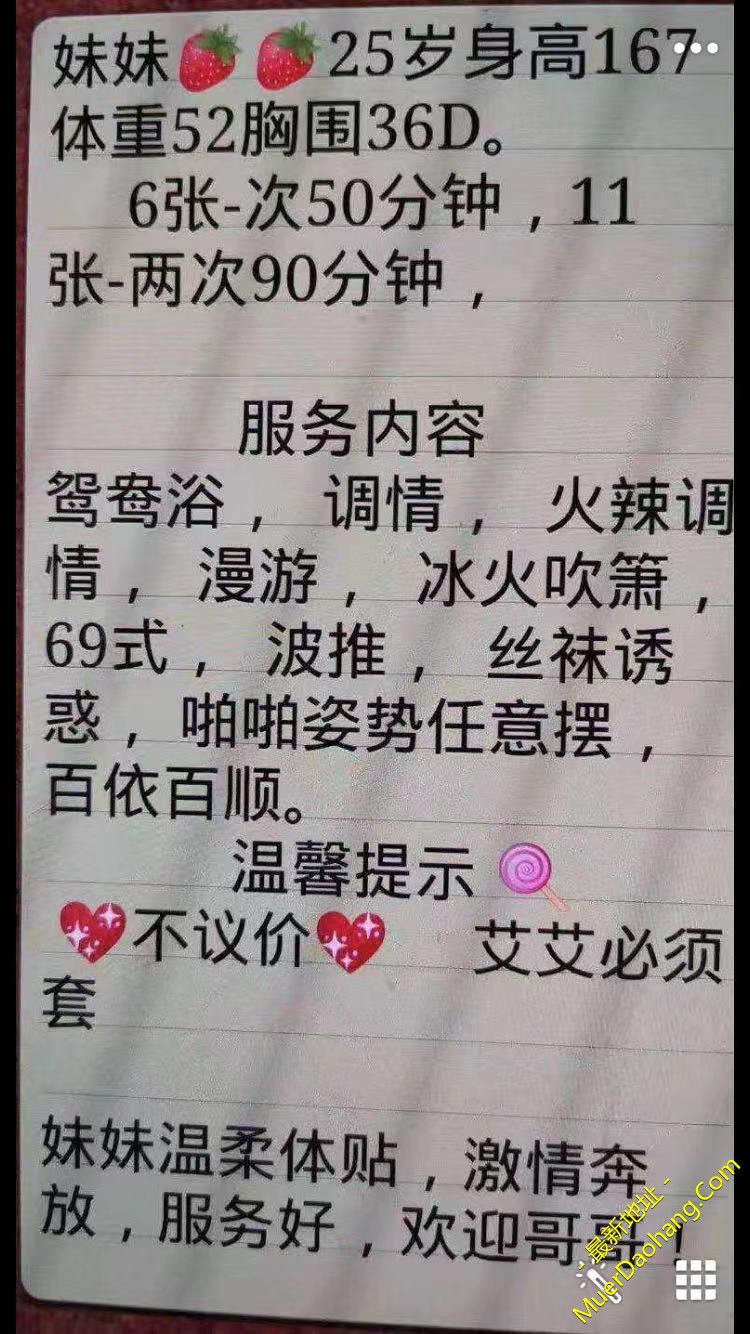 妹妹🍓🍓25岁身高167
体重52胸围36D。
6张-次50分钟，11
张-两次90分钟，
服务内容
鸳鸯浴， 调情， 火辣调
情， 漫游， 冰火吹箫，
69式， 波推， 丝袜诱
惑， 啪啪姿势任意摆，
百依百顺。
温馨提示🍭
💖不议价💖 艾艾必须
套
妹妹温柔体贴，激情奔
放，服务好，欢迎哥哥！
- 最新地址 -
MuerDaohang.Com